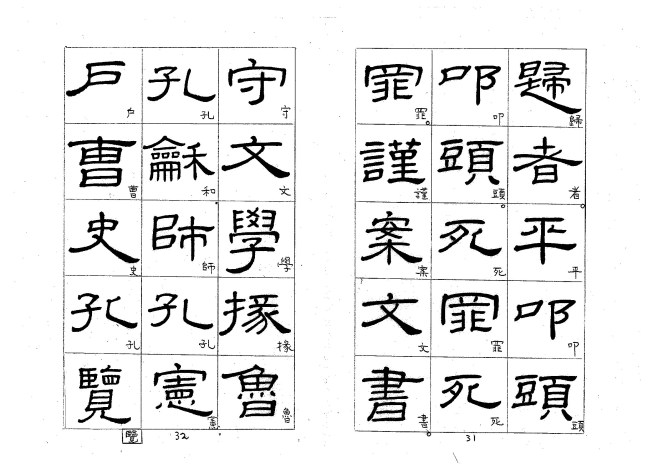 歸者平叩頭
歸者。平叩頭
叩頭死罪死
叩頭。死罪死
罪謹案文書
罪。謹案文書。
31
守文學掾魯
守文學掾魯
孔龢師孔憲
孔和師孔憲
戶曹史孔覽
戶曹史孔覽
32